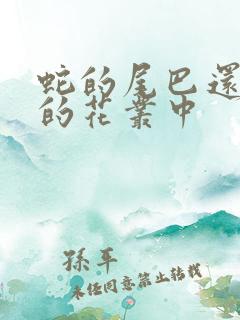 蛇的尾巴還
的花叢中
孫平
未经同意禁止转载